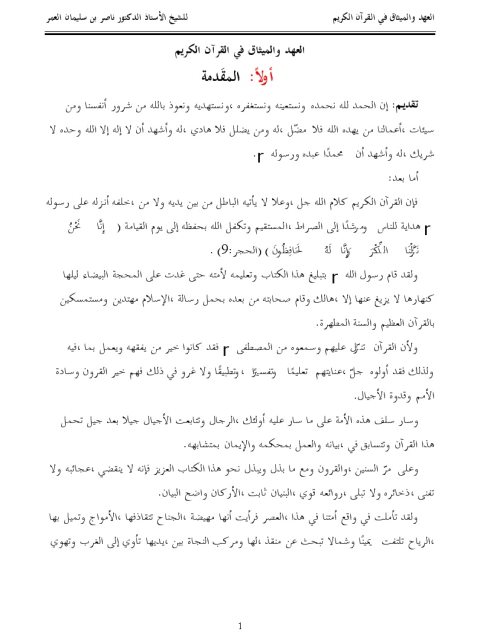 العهد والميثاق في القرآن الكريم
للشيخ الأستاذ الدكتور ناصر بن سليمان العمر
العهد والميثاق في القرآن الكريم
أولاً: المقدمة
تقديم: إن الحمد لله نحمده ونستعينه ونستغفره ،ونستهديه ونعوذ بالله من شرور أنفسنا ومن
سيئات ،أعمالنا من يهده الله فلا مضّل ،له ومن يضلل فلا هادي ،له وأشهد أن لا إله إلا الله وحده لا
شريك ،له وأشهد أن محمدًا عبده ورسوله r.
أما بعد:
فإن القرآن الكريم كلام الله جل ،وعلا لا يأتيه الباطل من بين يديه ولا من ،خلفه أنزله على رسوله
r هداية للناس ومرشدًا إلى الصراط ،المستقيم وتكفل الله بحفظه إلى يوم القيامة ( إِنَّا نَحْنُ
نَزَّلْنَا الذِّكْرَ وَإِنَّا لَهُ لَحَافِظُونَ ) (الحجر:9) .
ولقد قام رسول الله r بتبليغ هذا الكتاب وتعليمه لأمته حتى غدت على المحجة البيضاء ليلها
كنهارها لا يزيغ عنها إلا ،هالك وقام صحابته من بعده بحمل رسالة ،الإسلام مهتدين ومستمسكين
بالقرآن العظيم والسنة المطهرة.
ولأن القرآن تنزّل عليهم وسمعوه من المصطفى r فقد كانوا خير من يفقهه ويعمل بما ،فيه
ولذلك فقد أولوه جلّ ،عنايتهم تعليمًا وتفسيرًا ،وتطبيقًا ولا غرو في ذلك فهم خير القرون وسادة
الأمم وقدوة الأجيال.
وسار سلف هذه الأمة على ما سار عليه أولئك ،الرجال وتتابعت الأجيال جيلا بعد جيل تحمل
هذا القرآن وتتسابق في ،بيانه والعمل بمحكمه والإيمان بمتشابهه.
وعلى مرّ السنين ،والقرون ومع ما بذل ويبذل نحو هذا الكتاب العزيز فإنه لا ينقضي ،عجائبه ولا
تفنى ،ذخائره ولا تبلى ،روائعه قوي ،البنيان ثابت ،الأركان واضح البيان.
ولقد تأملت في واقع أمتنا في هذا ،العصر فرأيت أنها مهيضة ،الجناح تتقاذفها ،الأمواج وتميل بها
،الرياح تلتفت يمينًا وشمالا تبحث عن منقذ ،لها ومركب النجاة بين ،يديها تأوي إلى الغرب وتهوي
1